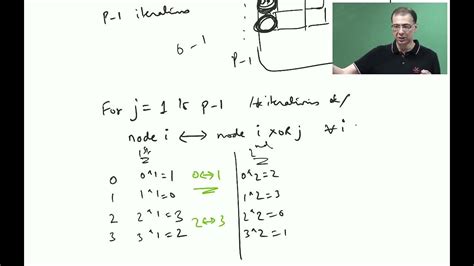 P-1 iterations
6-1
P-1
For j = 1 to P-1 /* iterations */
node i ↔ node i xor j ∀ i
1st 2nd
0 0^1=1 0↔1 0^2=2
1 1^1=0 1^2=3
2 2^1=3 2↔3 2^2=0
3 3^1=2 3^2=1